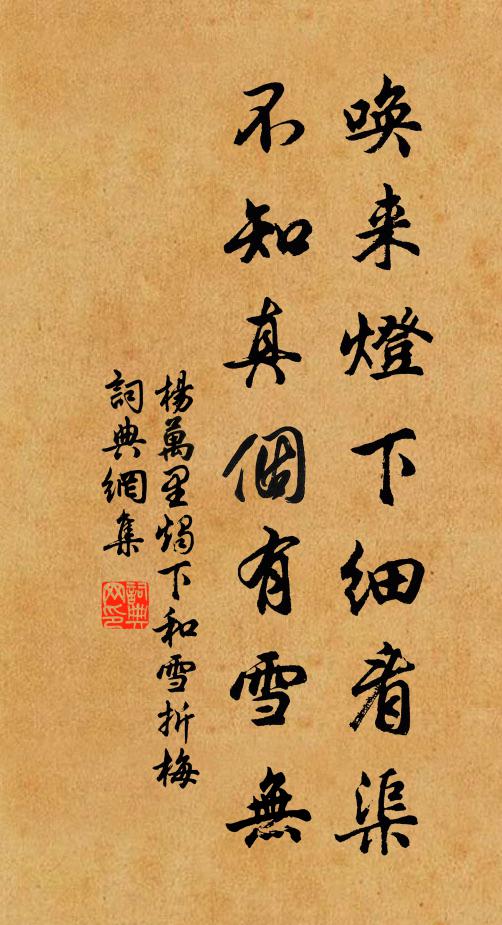 唤来燈下細看渠
不知真個有雪無
楊萬里燭下和雪折梅
詞典網集
詞典
网印